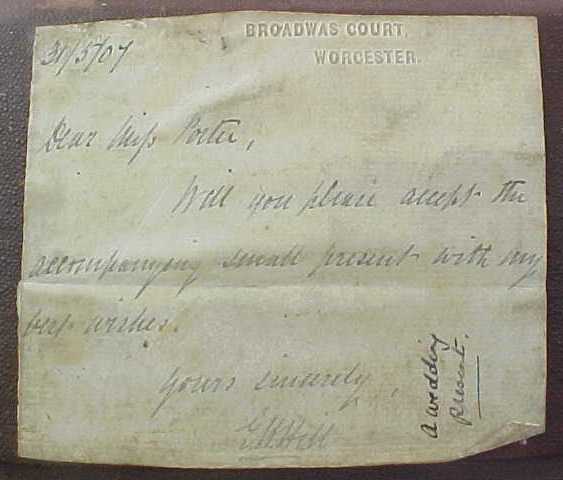 BROADWAS COURT,
WORCESTER.
31/5/07
Dear Miss Porter,
Will you please accept the
accompanying small present with my
best wishes.
Yours sincerely,
Hill
A wedding
present.